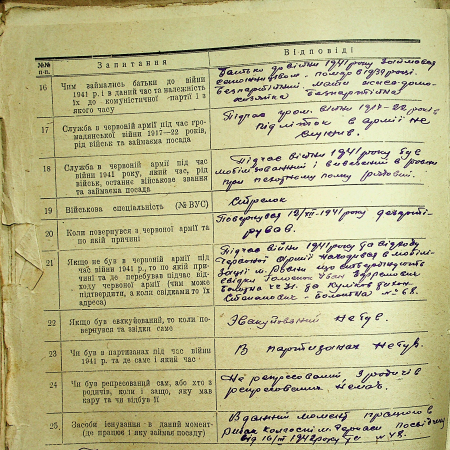 №№
п-п.
Запитання
Відповіді
16
Чим займались батьки до війни
1941 р. і в даний час та належність
їх до комуністичної партії і з
якого часу
Батьки до війни 1941 року займався
безпартійний. мати
безпартійна
17
Служба в червоній армії під час гро-
мадянської війни 1917—22 років,
рід військ та займаєма посада
Під час гром. війни 1917-22 років
підліток в армії не
служив.
18
Служба в червоній армії під час
війни 1941 року, який час, рід
військ, останнє військове звання
та займаєма посада
Підчас війни 1941 року був
мобілізований і
при рядовий.
19
Військова спеціяльність (№ ВУС)
Стрелок
20
Коли повернувся з червоної армії та
по якій причині
Повернувся 19/VII-1941 року дезерті-
рував.
21
Якщо не був в червоній армії під
час війни 1941 р., то по якій при-
чині та де перебував підчас від-
ходу червоної армії (чим може
підтвердити, а коли свідками то їх
адреса)
Підчас війни 1941 року до відходу
Червоної Армії находився в мобілі-
зації м.
свідки
№ 68.
22
Якщо був евакуйований, то коли по-
вернувся та звідки саме
Эвакуйований не був.
23
Чи був в партизанах під час війни
1941 р. та де саме і який час
В партизанах не був.
24
Чи був репресований сам, або хто з
родичів, коли і защо, яку мав
кару та чи відбув її
Не репресований з родичів
репресованих немає.
25.
Засоби існування в даний момент
(де працює і яку займає посаду)
В данний момент працюю в
від 16/III 1942 року № 48.